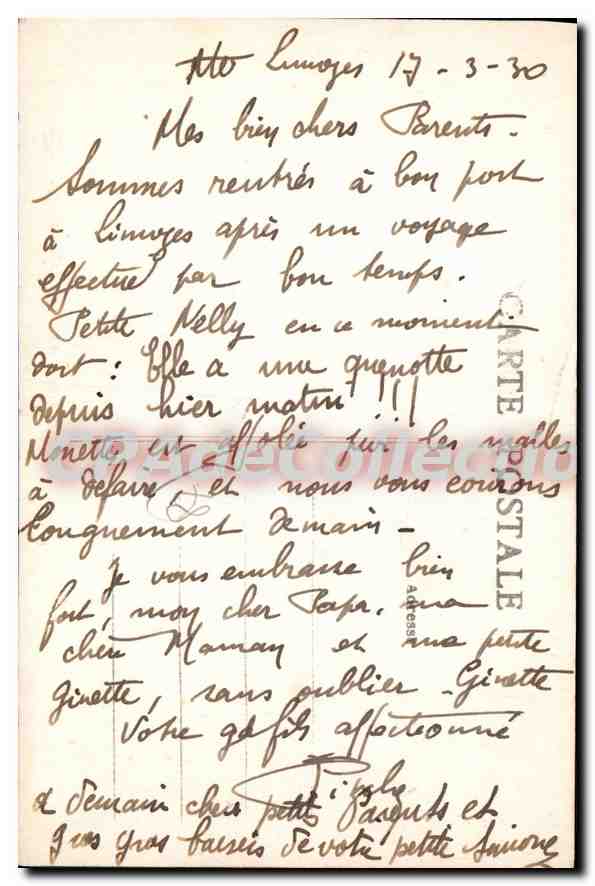 Limoges 17-3-30
Mes bien chers Parents.
Sommes rentrés à bon port
à Limoges après un voyage
effectué par bon temps.
Petite Nelly en ce moment
dort : Elle a une quenotte
depuis hier matin !!!
Nonette est affolée par les mailles
à défaire, et nous vous écrirons
longuement demain -
Je vous embrasse bien
fort, mon cher Papa, ma
chère Maman et ma petite
Ginette, sans oublier Ginette
Votre gd fils affectionné
à demain chers petits Parents et
gros gros baisers de votre petite Simone
CARTE POSTALE
Adresse
CPADeCollection